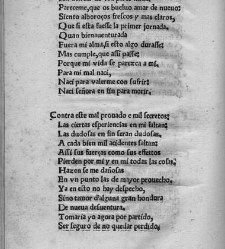 Pareceme, que os bucluo amar de nueuo:
Siento alboroços frescos y mas claros,
Que si esta fuesse la primer jornada,
Quan bienauenturada
Fuera mi alma, si esto algo durasse:
Mas cumple, que assi passe;
Porque mi vida se parezca a mi.
Para mi mal naci,
Naci para valerme con sufrir:
Naci señora en fin para morir.
Contra este mal prouado e mil secretos;
Las ciertas esperiencias en mi faltan:
Las dudosas en fin seran dudosas.
A cada bien mil accidentes saltan:
Assi sus fuerças como sus effetos
Pierden por mi y en mi todas las cosas,
Hazense dañosas
En vn punto las de mayor prouecho,
Ya en esto no hay despecho,
Sino temor d'alguna gran hondura
De nueua desuentura.
Tomaria yo agora por partido,
Ser seguro de no quedar perdido,